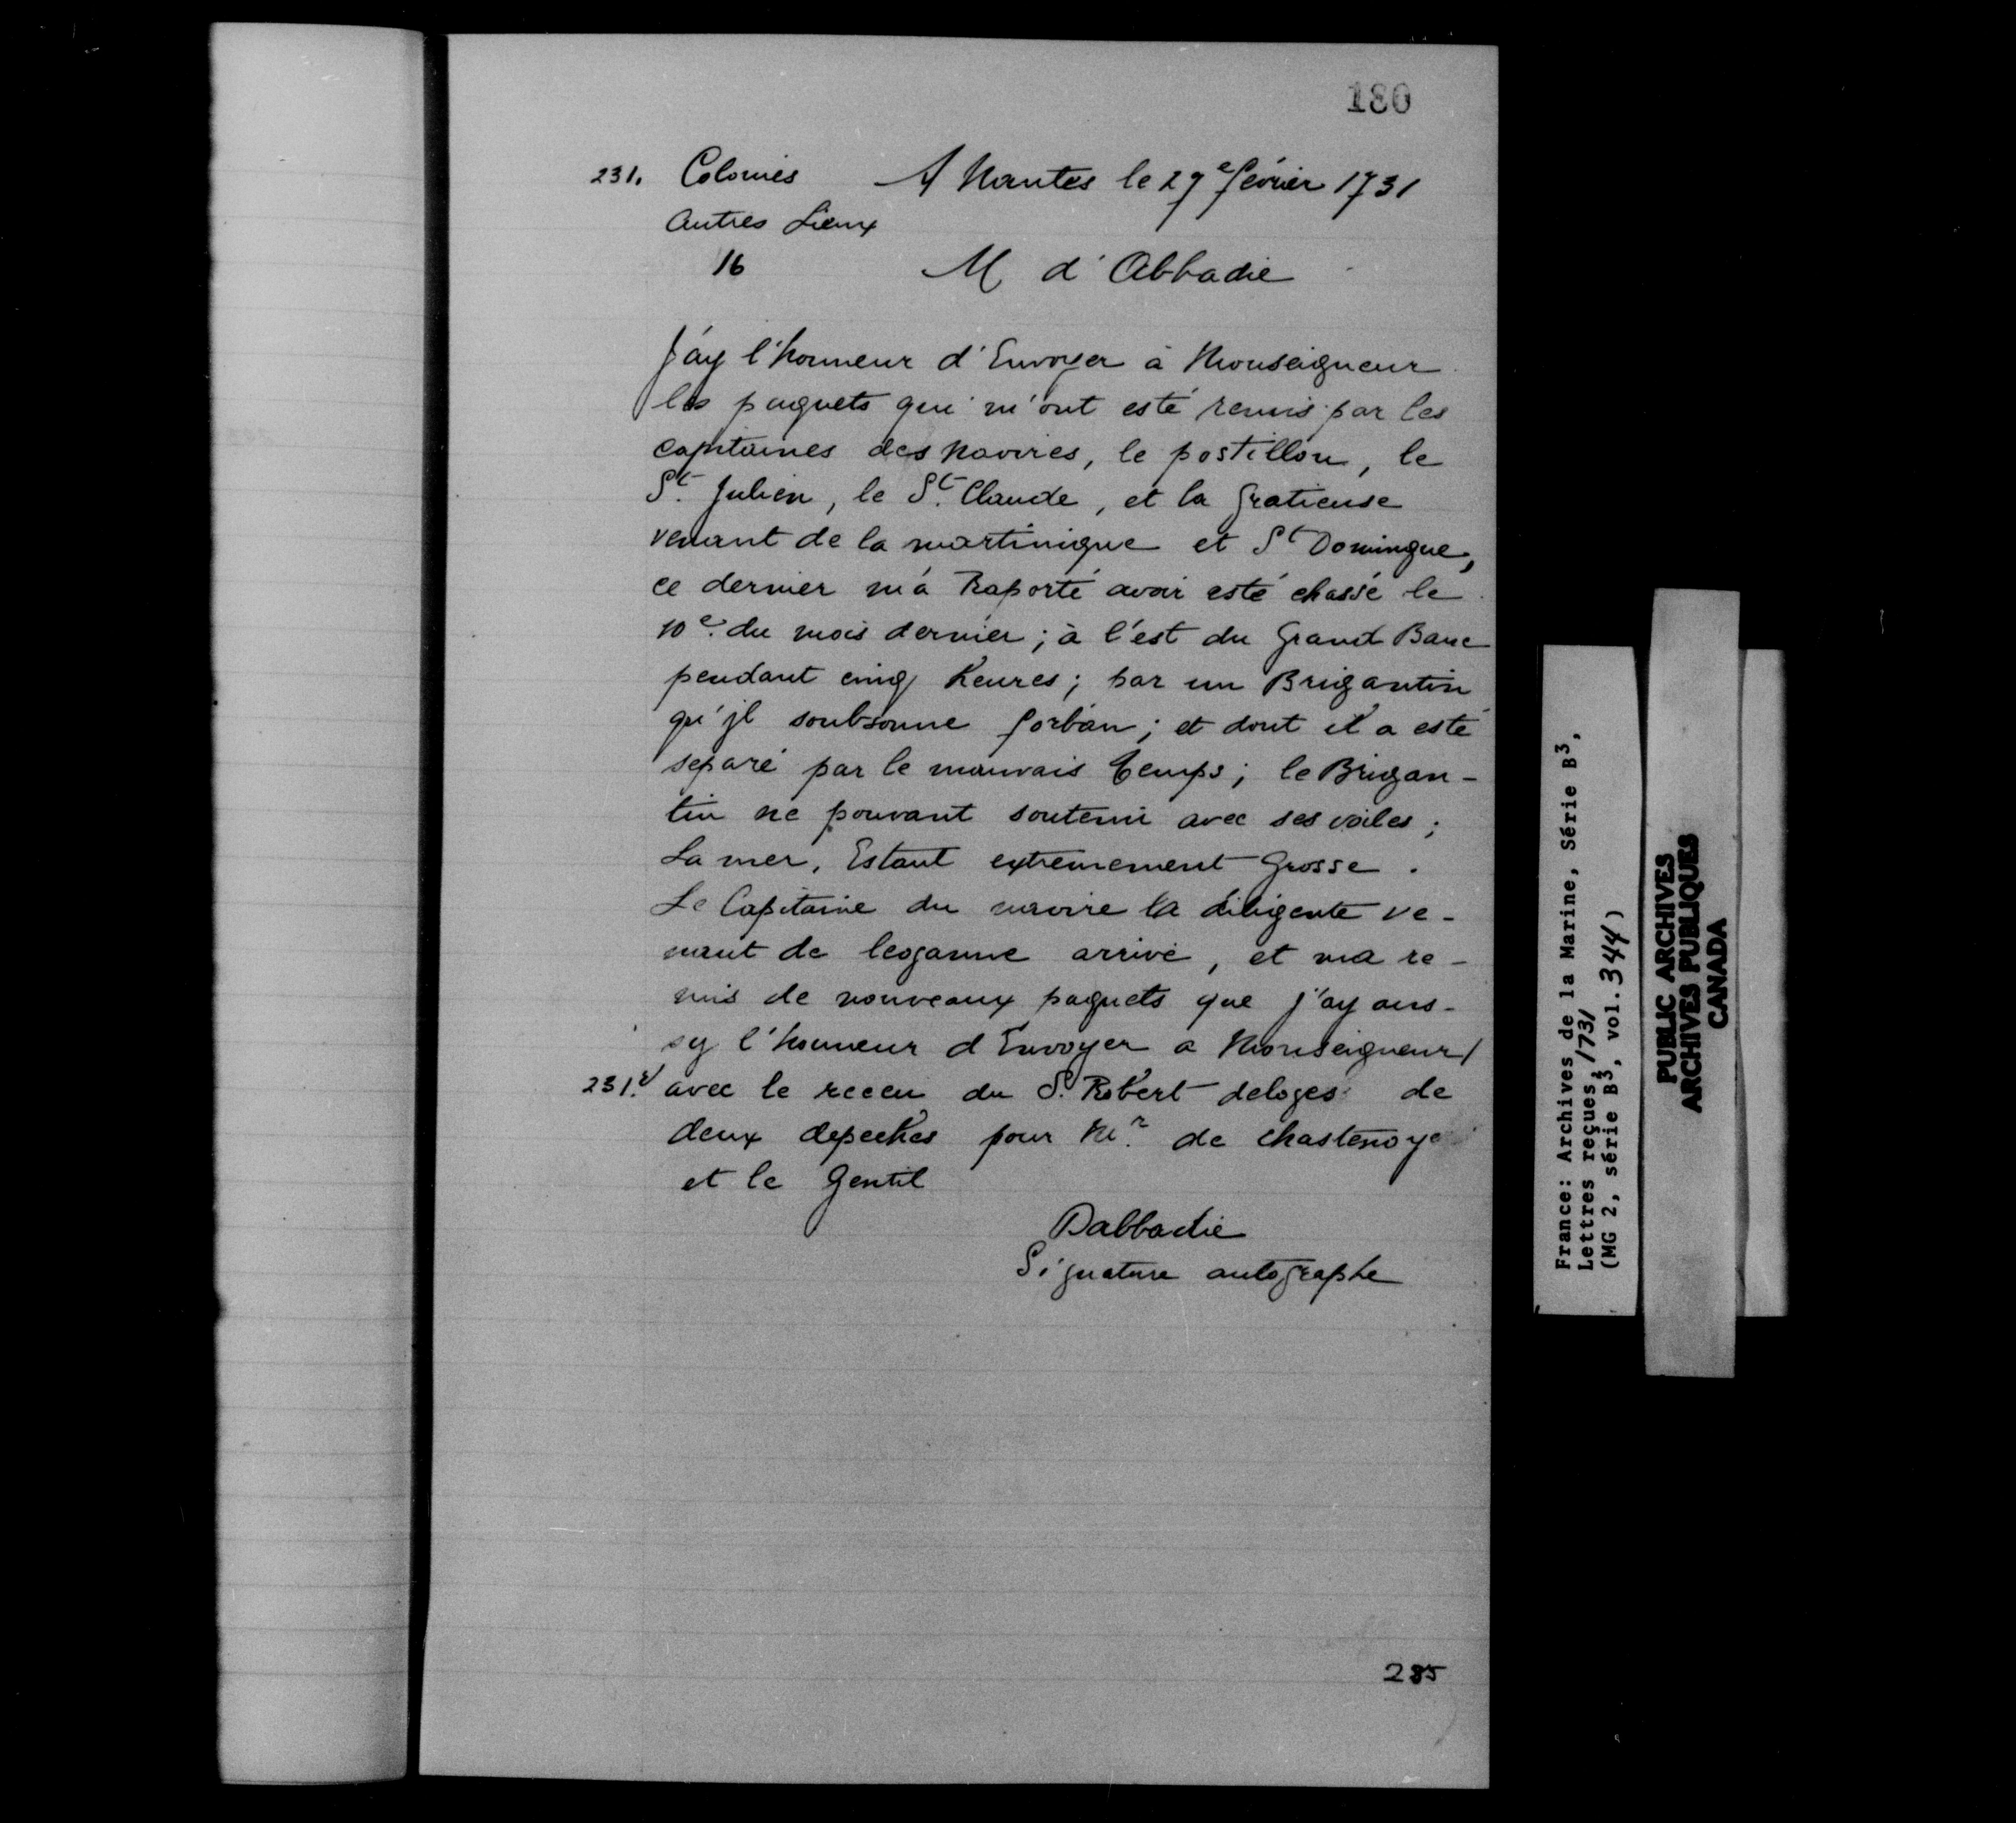 180
231. Colonies A Nantes le 27e février 1731
Autres Lieux
16 M d'Abbadie
J'ay l'honneur d'Envoyer à Monseigneur
les paquets qui m'ont esté remis par les
capitaines des navires, le postillon, le
St. Julien, le St. Claude, et la gratieuse
venant de la martinique et St Domingue,
ce dernier m'a Raporté avoir esté chassé le
10e. du mois dernier; à l'est du Grand Banc
pendant cinq heures; par un Brigantin
qu'jl soubsonne forban; et dont il a esté
separé par le mauvais temps; le Brigan-
tin ne pouvant soutenir avec ses voiles;
La mer, Estant extremement Grosse.
Le Capitaine du navire la diligente ve-
nant de leoganne arrivé, et m'a re-
mis de nouveaux paquets que j'ay aus-
sy l'honneur d'Envoyer a Monseigneur/
231.v avec le receu du S. Robert deloges de
deux depeches pour Mr. de chastenoye
et le Gentil
Dabbadie
Signature autographe
285
France: Archives de la Marine, Série B3,
Lettres reçues, 1731
(MG 2, série B3, vol. 344)
PUBLIC ARCHIVES
ARCHIVES PUBLIQUES
CANADA